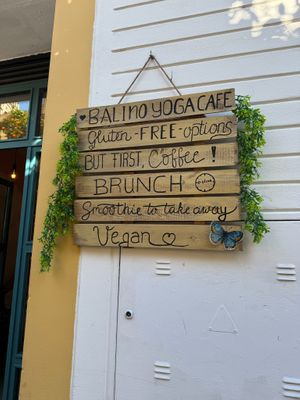 BALINO YOGA CAFE
Gluten-FREE-options
BUT FIRST, Coffee!
BRUNCH
Smoothie to take away
Vegan